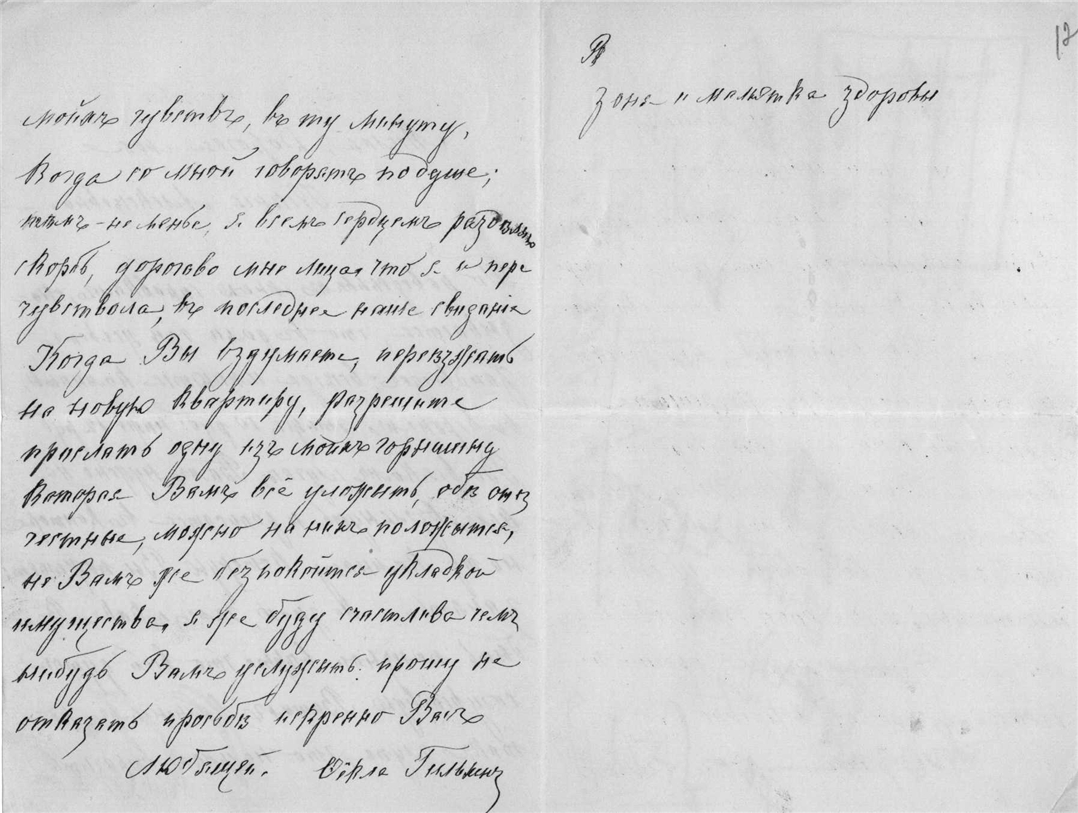 моихъ чувствъ, въ ту минуту,
когда со мной говорятъ по душе;
не менье, я всемъ сердцемъ
скорбь, дорогово мне лица, что я и пере
чувствола, въ последнее наше свидание
Когда Вы вздумаете, переезжать
на новую квартиру, разрешите
прислать одну изъ моихъ горнишныхъ
которая Вамъ всё уложытъ, обе они
честные, можно на нихъ положытся,
не Вамъ же безпокоится укладкой
имущества, я же буду счастлива чемъ
нибудь Вамъ услужыть. прошу не
отказать прозьбе искренно Васъ
Любящей. Фёкла
12
Зоня и малютка здоровы